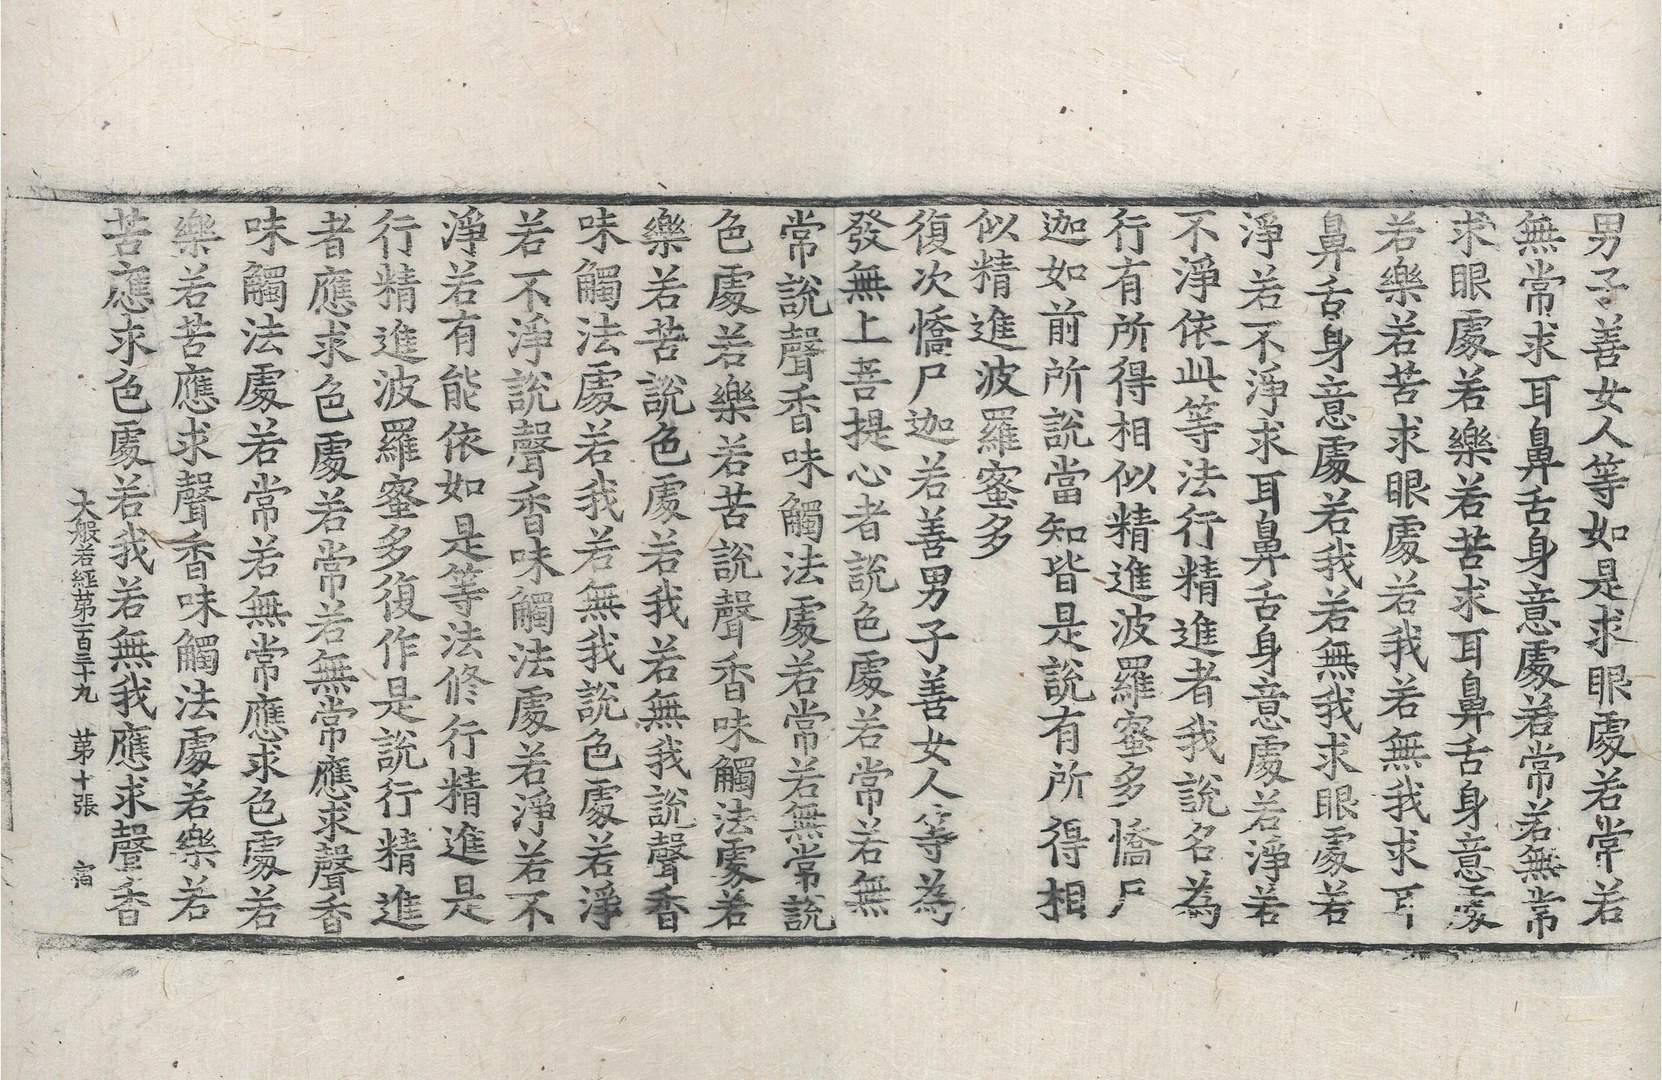 男子善女人等如是求眼處若常若
無常求耳鼻舌身意處若常若無常
求眼處若樂若苦求耳鼻舌身意處
若樂若苦求眼處若我若無我求耳
鼻舌身意處若我若無我求眼處若
淨若不淨求耳鼻舌身意處若淨若
不淨依此等法行精進者我說名為
行有所得相似精進波羅蜜多憍尸
迦如前所說當知皆是說有所得相
似精進波羅蜜多
復次憍尸迦若善男子善女人等為
發無上菩提心者說色處若常若無
常說聲香味觸法處若常若無常說
色處若樂若苦說聲香味觸法處若
樂若苦說色處若我若無我說聲香
味觸法處若我若無我說色處若淨
若不淨說聲香味觸法處若淨若不
淨若有能依如是等法修行精進是
行精進波羅蜜多復作是說行精進
者應求色處若常若無常應求聲香
味觸法處若常若無常應求色處若
樂若苦應求聲香味觸法處若樂若
苦應求色處若我若無我應求聲香
大般若經第一百三十九 第十張 宿